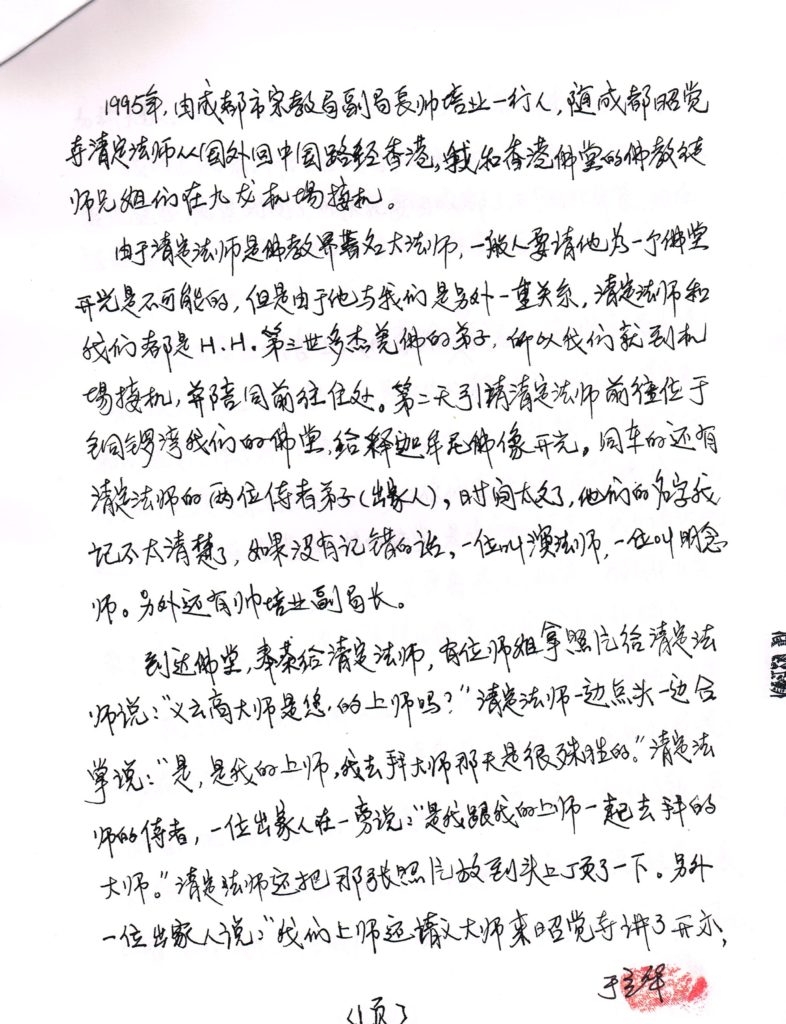 1995年，由成都市宗教局副局長帅培业一行人，随成都昭觉
寺清定法师从国外回中国路経香港，我和香港佛堂的佛教徒
师兄姐们在九龙机場接机。
由于清定法师是佛教界著名大法师，一般人要请他为一个佛堂
开光是不可能的，但是由于他与我们是另外一重关系，清定法师和
我们都是H.H.第三世多杰羌佛的弟子，所以我们就到机
場接机，并陪同前往住处。第二天引請清定法师前往位于
铜锣湾我们的佛堂，给释迦牟尼佛像开光。同车的还有
清定法师的两位侍者弟子（出家人），时间太久了，他们的名字我
记不太清楚了，如果没有记错的话，一位叫演法师，一位叫明念
师。另外还有帅培业副局长。
到达佛堂，奉茶给清定法师，有位师姐拿照片给清定法
师说："义云高大师是您的上师吗？"清定法师一边点头一边合
掌说："是，是我的上师，我去拜大师那天是很殊胜的。"清定法
师的侍者，一位出家人在一旁说："是我跟我的上师一起去拜的
大师。"清定法师还把那张照片放到头上顶了一下。另外
一位出家人说："我们上师还請义大师来昭觉寺讲了开示，
于立华
〈1页〉